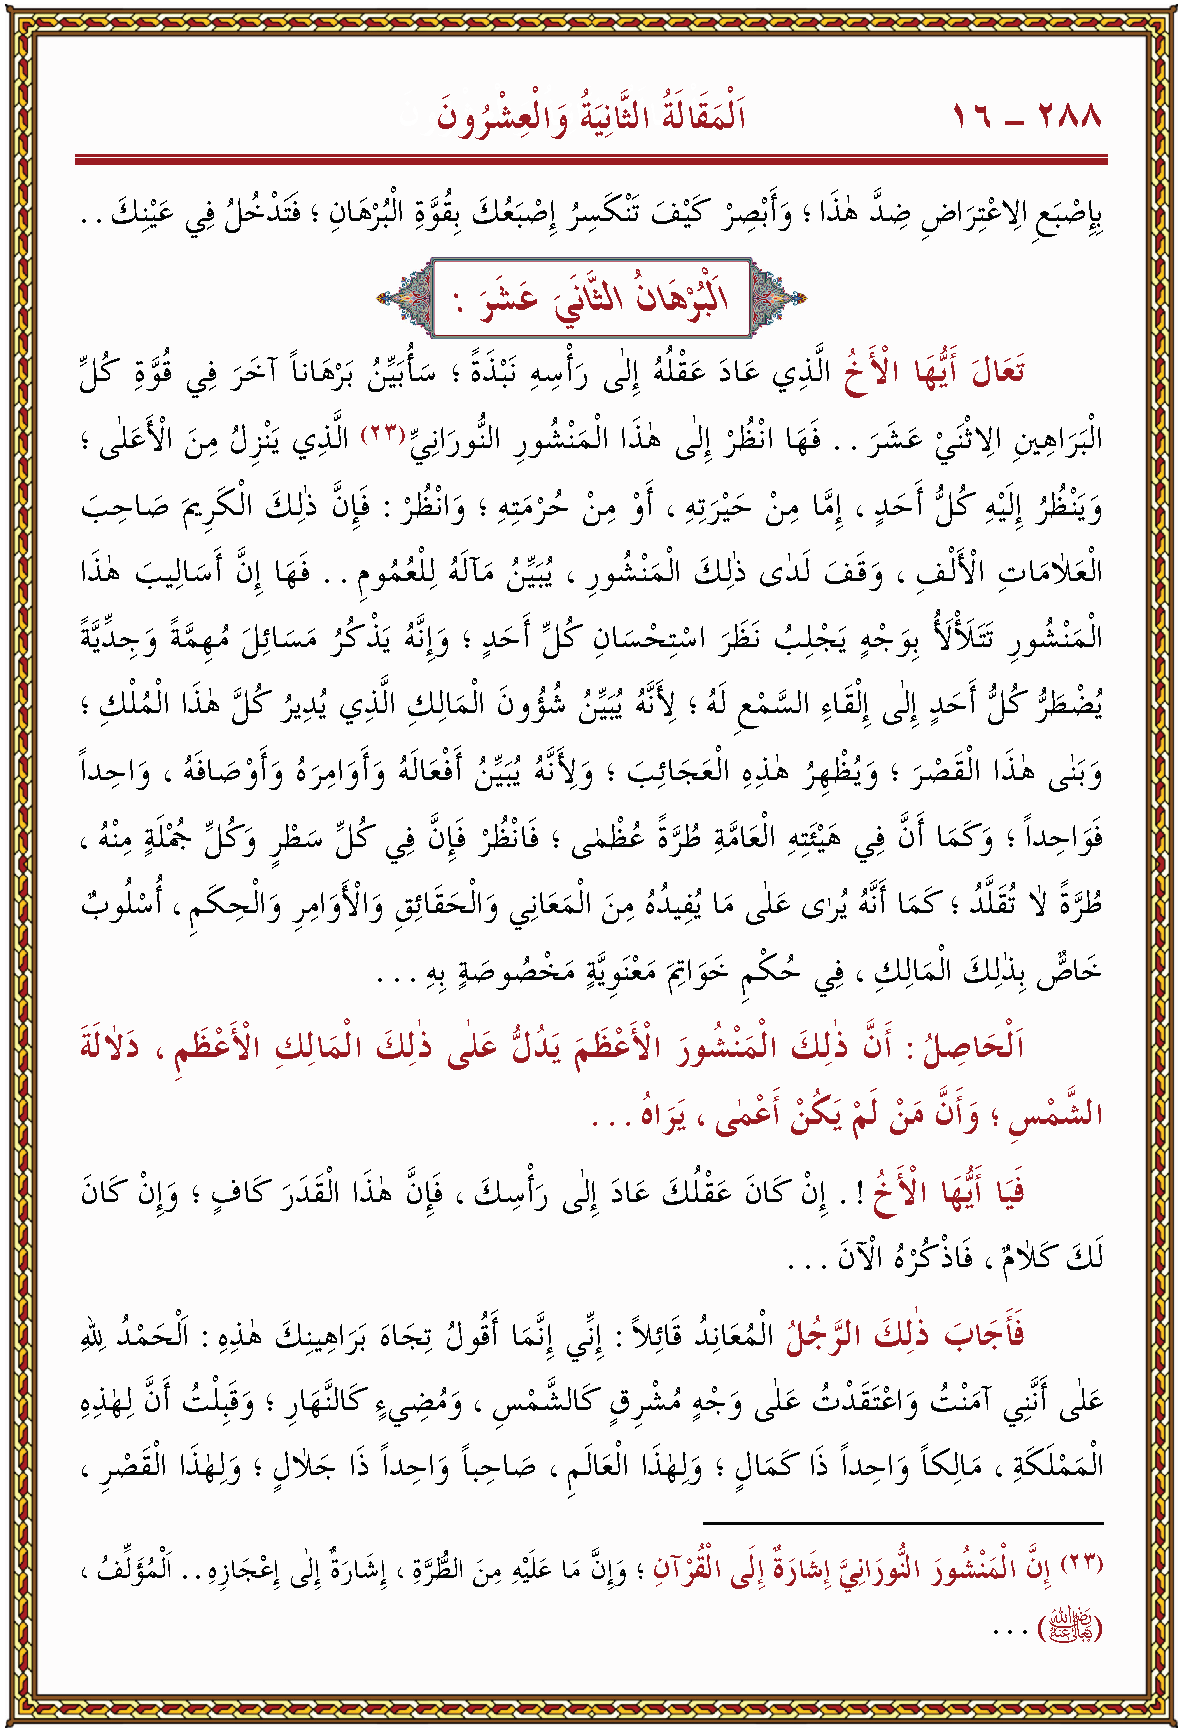 ٢٨٨ – ١٦ اَلْمَقَالَةُ الثَّانِيَةُ وَالْعِشْرُونَ
بِإِصْبَعِ اِلاعْتِرَاضِ ضِدَّ هٰذَا ؛ وَأَبْصِرْ كَيْفَ تَنْكَسِرُ إِصْبَعُكَ بِقُوَّةِ الْبُرْهَانِ ؛ فَتَدْخُلُ فِي عَيْنِكَ . .
اَلْبُرْهَانُ الثَّانِيَ عَشَرَ :
تَعَالَ أَيُّهَا الْأَخُ الَّذِي عَادَ عَقْلُهُ إِلٰى رَأْسِهِ نَبْذَةً ؛ سَأُبَيِّنُ بَرْهَاناً آخَرَ فِي قُوَّةِ كُلِّ
الْبَرَاهِينِ اِلاثْنَيْ عَشَرَ . . فَهَا انْظُرْ إِلٰى هٰذَا الْمَنْشُورِ النُّورَانِيِّ(٢٣) الَّذِي يَنْزِلُ مِنَ الْأَعْلٰى ؛
وَيَنْظُرُ إِلَيْهِ كُلُّ أَحَدٍ ، إِمَّا مِنْ حَيْرَتِهِ ، أَوْ مِنْ حُرْمَتِهِ ؛ وَانْظُرْ : فَإِنَّ ذٰلِكَ الْكَرِيمَ صَاحِبَ
الْعَلَامَاتِ الْأَلْفِ ، وَقَفَ لَدٰى ذٰلِكَ الْمَنْشُورِ ، يُبَيِّنُ مَآلَهُ لِلْعُمُومِ . . فَهَا إِنَّ أَسَالِيبَ هٰذَا
الْمَنْشُورِ تَتَلَأْلَأُ بِوَجْهٍ يَجْلِبُ نَظَرَ اسْتِحْسَانِ كُلِّ أَحَدٍ ؛ وَإِنَّهُ يَذْكُرُ مَسَائِلَ مُهِمَّةً وَجِدِّيَّةً
يُضْطَرُّ كُلُّ أَحَدٍ إِلٰى إِلْقَاءِ السَّمْعِ لَهُ ؛ لِأَنَّهُ يُبَيِّنُ شُؤُونَ الْمَالِكِ الَّذِي يُدِيرُ كُلَّ هٰذَا الْمُلْكِ ؛
وَبَنٰى هٰذَا الْقَصْرَ ؛ وَيُظْهِرُ هٰذِهِ الْعَجَائِبَ ؛ وَلِأَنَّهُ يُبَيِّنُ أَفْعَالَهُ وَأَوَامِرَهُ وَأَوْصَافَهُ ، وَاحِداً
فَوَاحِداً ؛ وَكَمَا أَنَّ فِي هَيْئَتِهِ الْعَامَّةِ طُرَّةً عُظْمٰى ؛ فَانْظُرْ فَإِنَّ فِي كُلِّ سَطْرٍ وَكُلِّ جُمْلَةٍ مِنْهُ ،
طُرَّةً لَا تُقَلَّدُ ؛ كَمَا أَنَّهُ يُرٰى عَلٰى مَا يُفِيدُهُ مِنَ الْمَعَانِي وَالْحَقَائِقِ وَالْأَوَامِرِ وَالْحِكَمِ ، أُسْلُوبٌ
خَاصٌّ بِذٰلِكَ الْمَالِكِ ، فِي حُكْمِ خَوَاتِمَ مَعْنَوِيَّةٍ مَخْصُوصَةٍ بِهِ . . .
اَلْحَاصِلُ : أَنَّ ذٰلِكَ الْمَنْشُورَ الْأَعْظَمَ يَدُلُّ عَلٰى ذٰلِكَ الْمَالِكِ الْأَعْظَمِ ، دَلَالَةَ
الشَّمْسِ ؛ وَأَنَّ مَنْ لَمْ يَكُنْ أَعْمٰى ، يَرَاهُ . . .
فَيَا أَيُّهَا الْأَخُ ! . إِنْ كَانَ عَقْلُكَ عَادَ إِلٰى رَأْسِكَ ، فَإِنَّ هٰذَا الْقَدَرَ كَافٍ ؛ وَإِنْ كَانَ
لَكَ كَلَامٌ ، فَاذْكُرْهُ الْآنَ . . .
فَأَجَابَ ذٰلِكَ الرَّجُلُ الْمُعَانِدُ قَائِلاً : إِنِّي إِنَّمَا أَقُولُ تِجَاهَ بَرَاهِينِكَ هٰذِهِ : اَلْحَمْدُ لِلّٰهِ
عَلٰى أَنَّنِي آمَنْتُ وَاعْتَقَدْتُ عَلٰى وَجْهٍ مُشْرِقٍ كَالشَّمْسِ ، وَمُضِيءٍ كَالنَّهَارِ ؛ وَقَبِلْتُ أَنَّ لِهٰذِهِ
الْمَمْلَكَةِ ، مَالِكاً وَاحِداً ذَا كَمَالٍ ؛ وَلِهٰذَا الْعَالَمِ ، صَاحِباً وَاحِداً ذَا جَلَالٍ ؛ وَلِهٰذَا الْقَصْرِ ،
(٢٣) إِنَّ الْمَنْشُورَ النُّورَانِيَّ إِشَارَةٌ إِلَى الْقُرْآنِ ؛ وَإِنَّ مَا عَلَيْهِ مِنَ الطُّرَّةِ ، إِشَارَةٌ إِلٰى إِعْجَازِهِ . . اَلْمُؤَلِّفُ ،
(رضي الله تعالى عنه) . . .